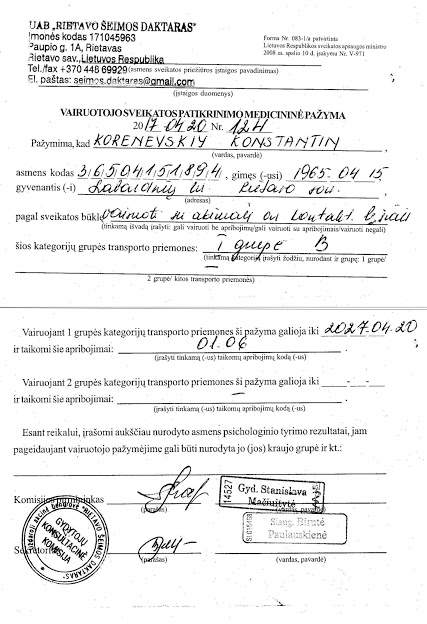 UAB „RIETAVO ŠEIMOS DAKTARAS"
Įmonės kodas 171045963
Paupio g. 1A, Rietavas
Rietavo sav., Lietuvos Respublika
Tel./fax +370 448 69929 (asmens sveikatos priežiūros įstaigos pavadinimas)
El. paštas: seimos.daktaras@gmail.com
(įstaigos duomenys)
Forma Nr. 083-1/a patvirtinta
Lietuvos Respublikos sveikatos apsaugos ministro
2008 m. spalio 10 d. įsakymu Nr. V-971
VAIRUOTOJO SVEIKATOS PATIKRINIMO MEDICININĖ PAŽYMA
2017 04 20 Nr. 124
Pažymima, kad KORENEVSKIY KONSTANTIN,
(vardas, pavardė)
asmens kodas 36504151894, gimęs (-usi) 1965. 04 15
gyvenantis (-i) Rietavo sav.
(adresas)
pagal sveikatos būklę vairuoti su akiniais
(tinkamą išvadą įrašyti: gali vairuoti be apribojimų/gali vairuoti su apribojimais/vairuoti negali)
šios kategorijų grupės transporto priemones: I grupė B
(tinkamą kategoriją įrašyti žodžiu, nurodant ir grupę: 1 grupė/
2 grupė/ kitos transporto priemonės)
Vairuojant 1 grupės kategorijų transporto priemones ši pažyma galioja iki 2027.04.20
ir taikomi šie apribojimai: 01.06
(įrašyti tinkamą (-us) taikomų apribojimų kodą (-us)
Vairuojant 2 grupės kategorijų transporto priemones ši pažyma galioja iki
ir taikomi šie apribojimai: —
(įrašyti tinkamą (-us) taikomų apribojimų kodą (-us)
Esant reikalui, įrašomi aukščiau nurodyto asmens psichologinio tyrimo rezultatai, jam
pageidaujant vairuotojo pažymėjime gali būti nurodyta jo (jos) kraujo grupė ir kt.:
Komisijos pirmininkas
(parašas)
14527
Gyd. Stanislava
Mačiuitytė
(vardas, pavardė)
Slaug. Birutė
Paulauskienė
Sekretorius
(parašas)
(vardas, pavardė)
GYDYTOJŲ
KONSULTACINĖ
KOMISIJA
"RIETAVO ŠEIMOS DAKTARAS"